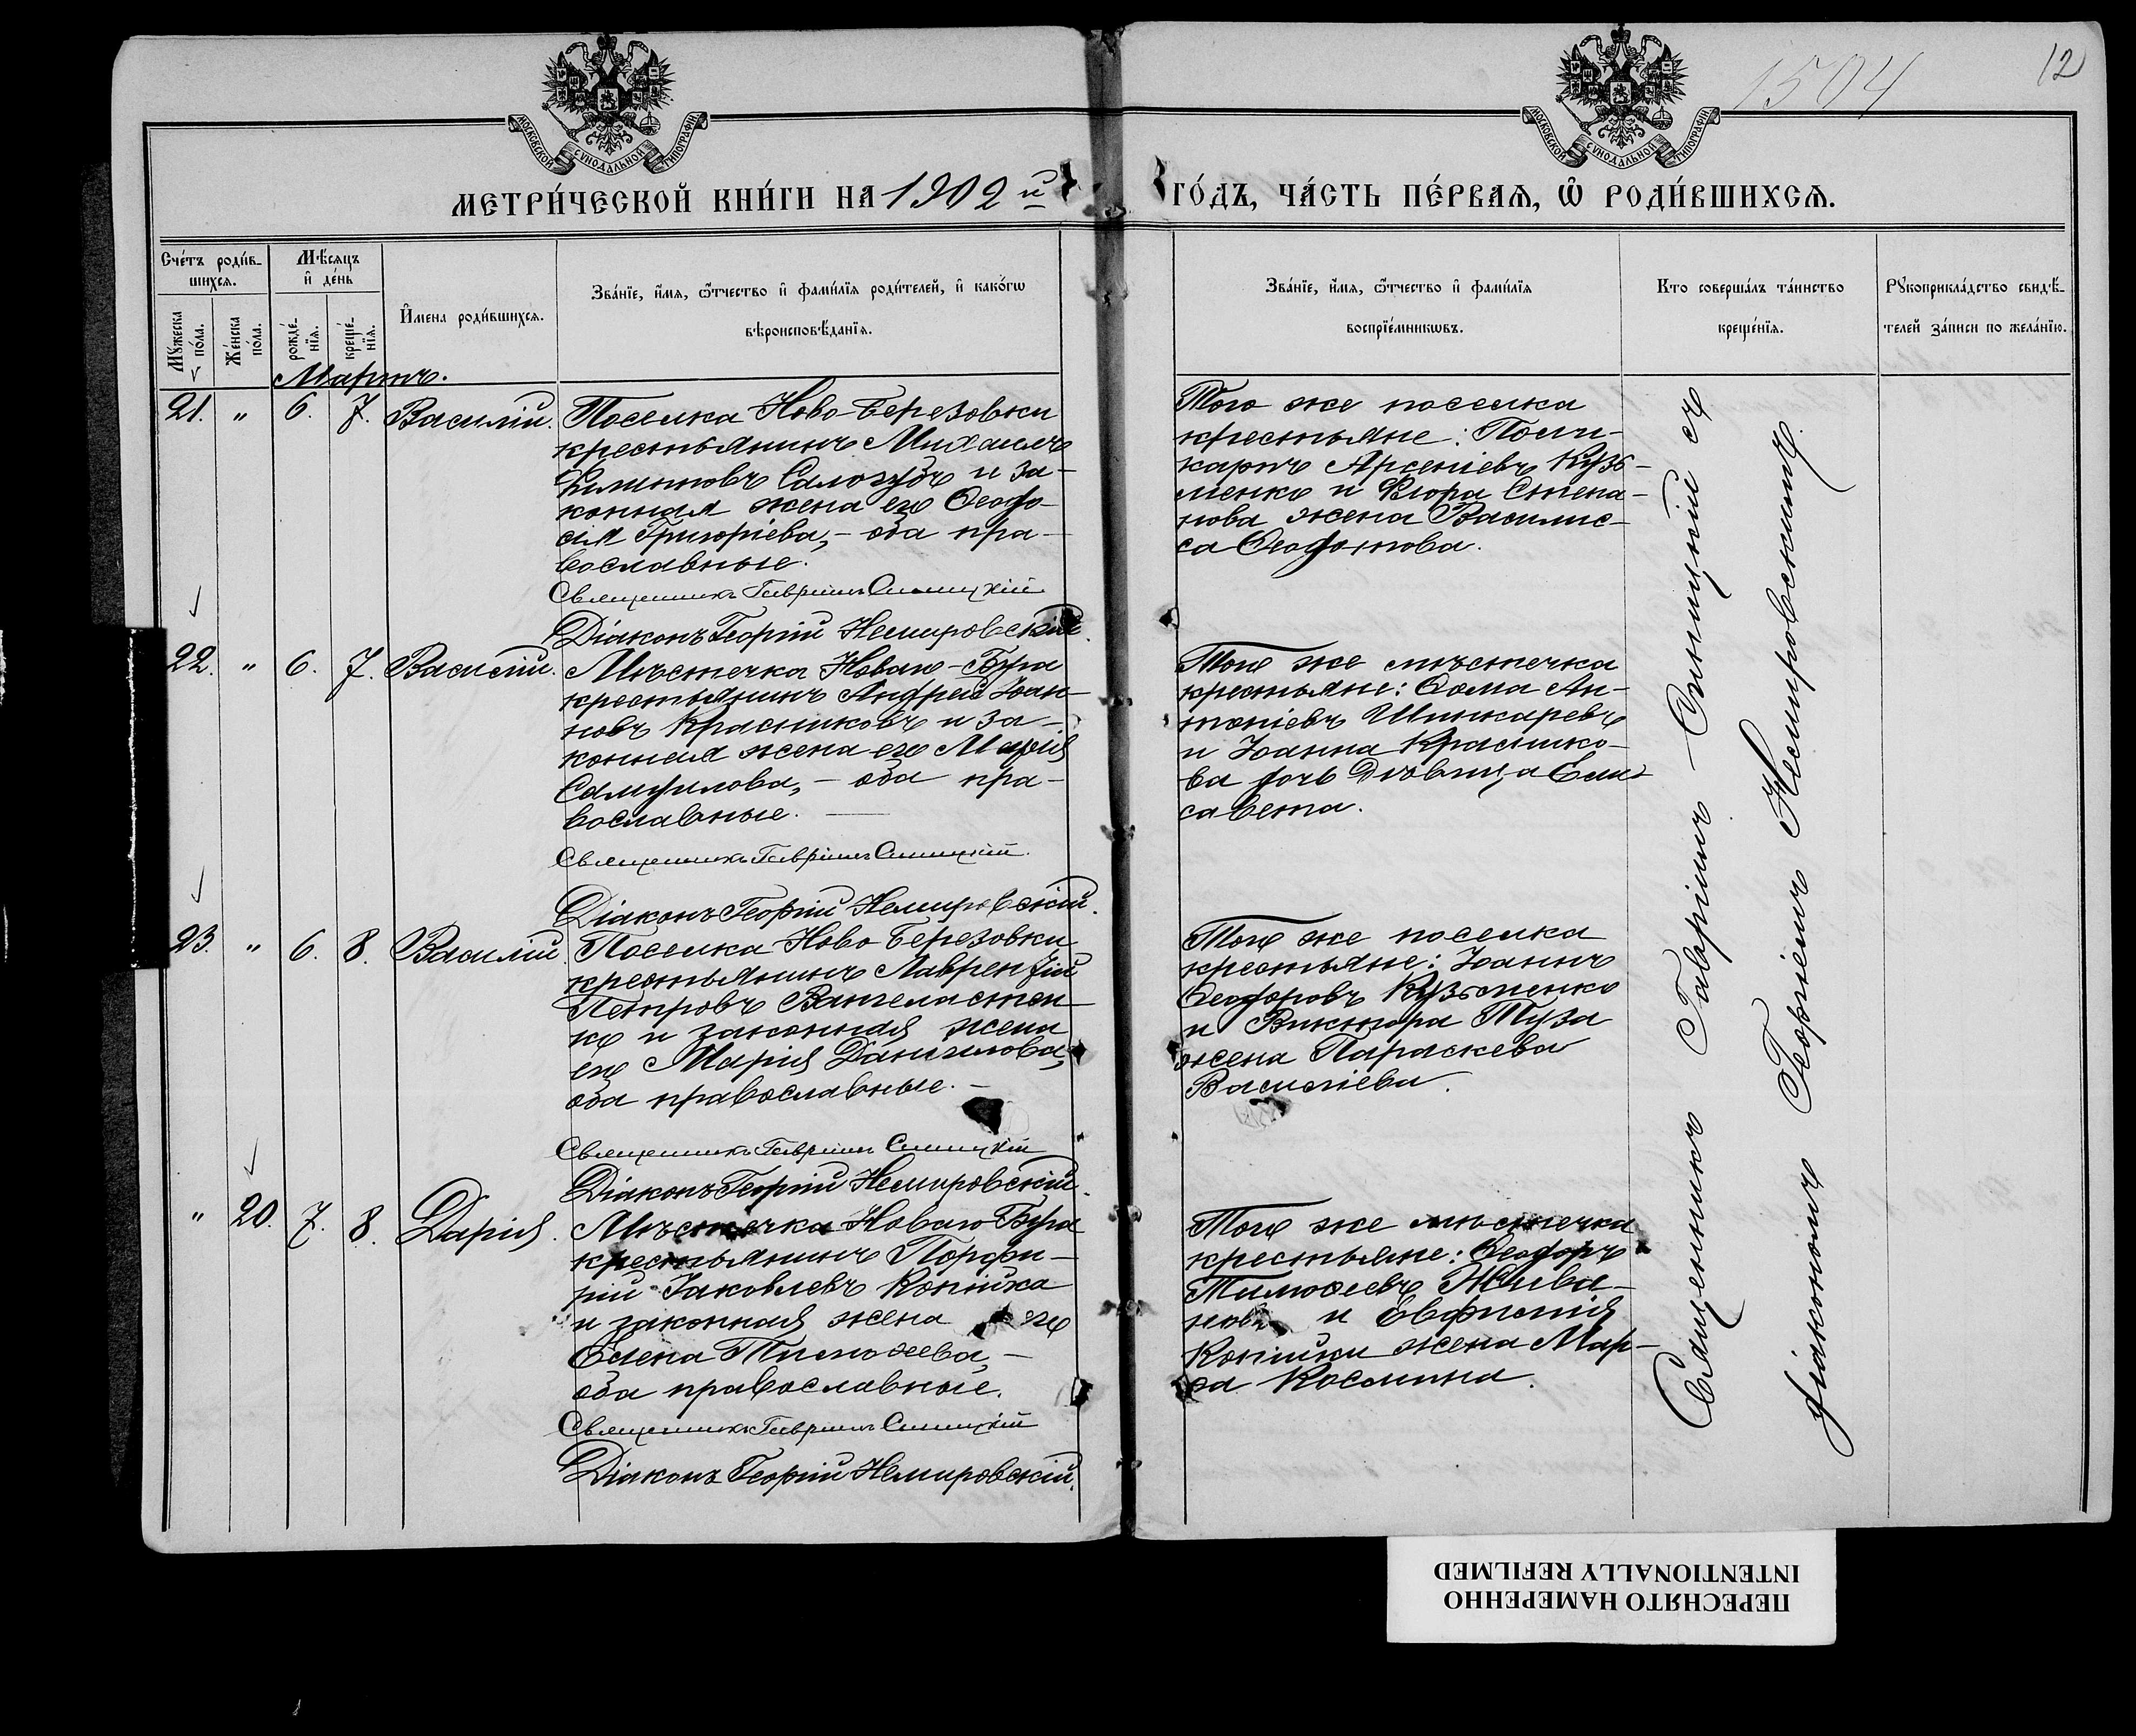 1504
12
МОСКОВСКОЙ СѴНОДАЛЬНОЙ ТИПОГРАФІИ
МОСКОВСКОЙ СѴНОДАЛЬНОЙ ТИПОГРАФІИ
МЕТРИ́ЧЕСКОЙ КНИ́ГИ НА 1902 й ГО́ДЪ, ЧА́СТЬ ПЕ́РВАѦ, Ѡ҆ РОДИ́ВШИХСѦ.
Сче́тъ роди́в-
шихсѧ.
Мꙋ́жеска по́ла.
Же́нска по́ла.
Мѣ́сѧцъ
и҆ де́нь
рожде́-
нїѧ.
креще́-
нїѧ.
И҆мена роди́вшихсѧ.
Зва́нїе, и҆́мѧ, ѻ҆́тчество и҆ фами́лїѧ роди́телей, и҆ како́гѡ
вѣроисповѣ́данїѧ.
Зва́нїе, и҆́мѧ, ѻ҆́тчество и҆ фами́лїѧ
воспрїе́мникѡвъ.
Кто соверша́лъ та́инство
креще́нїѧ.
Рꙋкоприкла́дство свидѣ́-
телей за́писи по жела́нїю.
Мартъ.
21. " 6. 7. Василій. Поселка Ново-Березовки
крестьянинъ Михаилъ
Филиповъ Салогубъ и за-
конная жена его Ѳеодо-
сія Григоріева, – оба пра-
вославные.
Священникъ Гавріилъ Синицкій
Діаконъ Георгій Немировскій.
Того же поселка
крестьяне: Поли-
карпъ Арсеніевъ Кузь-
менко и Флора Степа-
нова жена Василис-
са Ѳеодотова.
22. " 6. 7. Василій. Мѣстечка Новаго-Буга
крестьянинъ Андрей Іоан-
новъ Красниковъ и за-
конная жена его Марія
Самуилова, – оба пра-
вославные.
Священникъ Гавріилъ Синицкій.
Діаконъ Георгій Немировскій.
Того же мѣстечка
крестьяне: Ѳома Ан-
тоніевъ Шинкаревъ
и Іоанна Краснико-
ва дочь дѣвица Ели-
савета.
23. " 6. 8. Василій. Поселка Ново Березовки
крестьянинъ Лаврентій
Петровъ
и законная жена
его Марія Даніилова,
оба православные. –
Священникъ Гавріилъ Синицкій
Діаконъ Георгій Немировскій.
Того же поселка
крестьяне: Іоаннъ
Ѳеодоровъ Кузьменко
и Виктора Туза
жена Параскева
Василіева.
" 20. 7. 8. Дарія. Мѣстечка Новаго Буга
крестьянинъ Порфи-
рій Іаковлевъ Копійка
и законная жена его
Елена Тимоѳеева, –
оба православные.
Священникъ Гавріилъ Синицкій
Діаконъ Георгій Немировскій.
Того же мѣстечка
крестьяне: Ѳеодоръ
Тимоѳеевъ Живи-
новъ и Евфимія
Копійки жена Мар-
ѳа Космина.
Священникъ Гавріилъ Синицкій съ
діакономъ Георгіемъ Немировскимъ.
ПЕРЕСНЯТО НАМЕРЕННО
INTENTIONALLY REFILMED